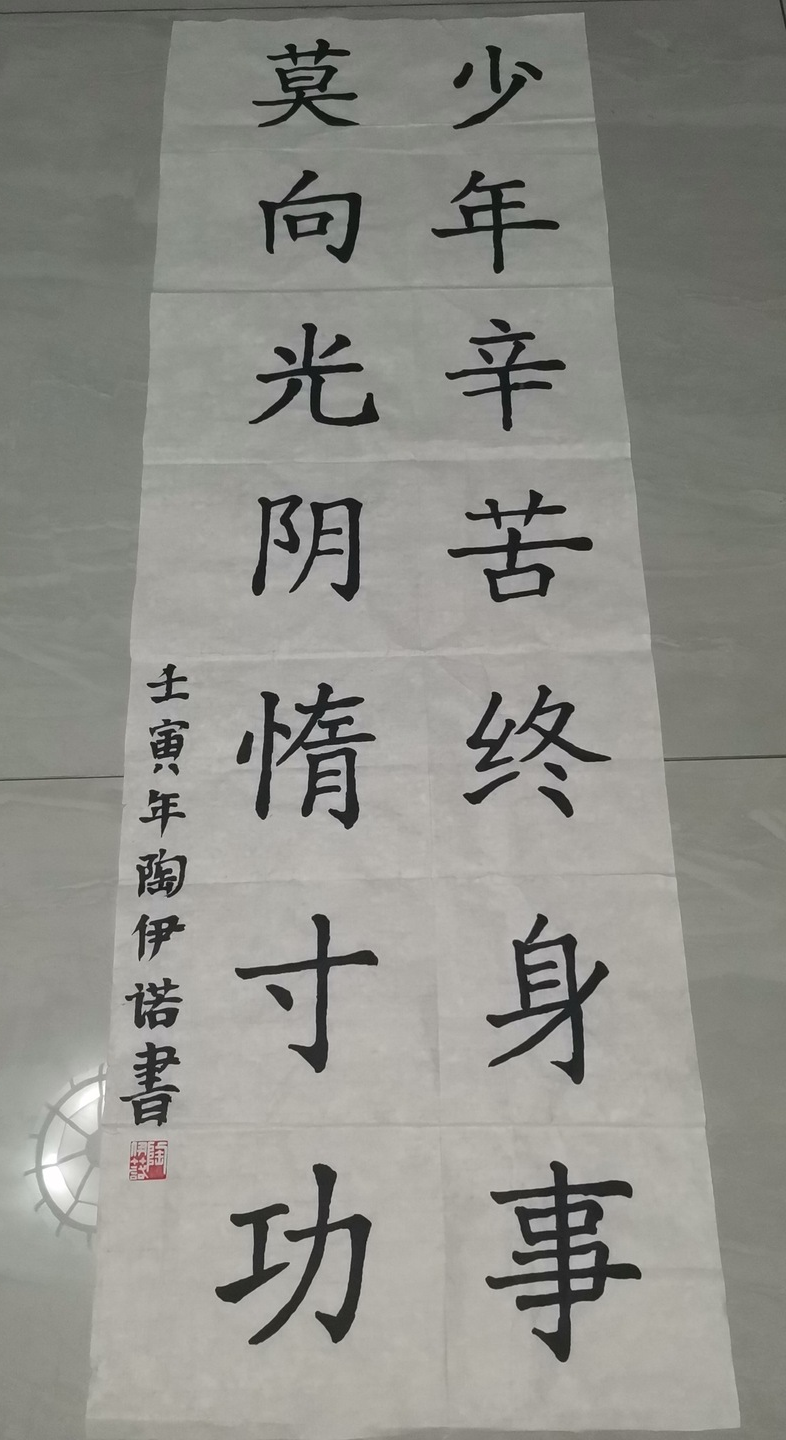 少年辛苦终身事
莫向光阴惰寸功
壬寅年陶伊诺書
陶伊諾